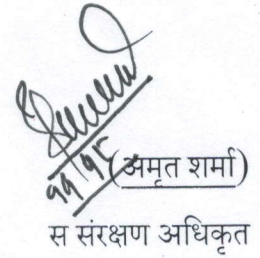 (अमृत शर्मा)
स संरक्षण अधिकृत